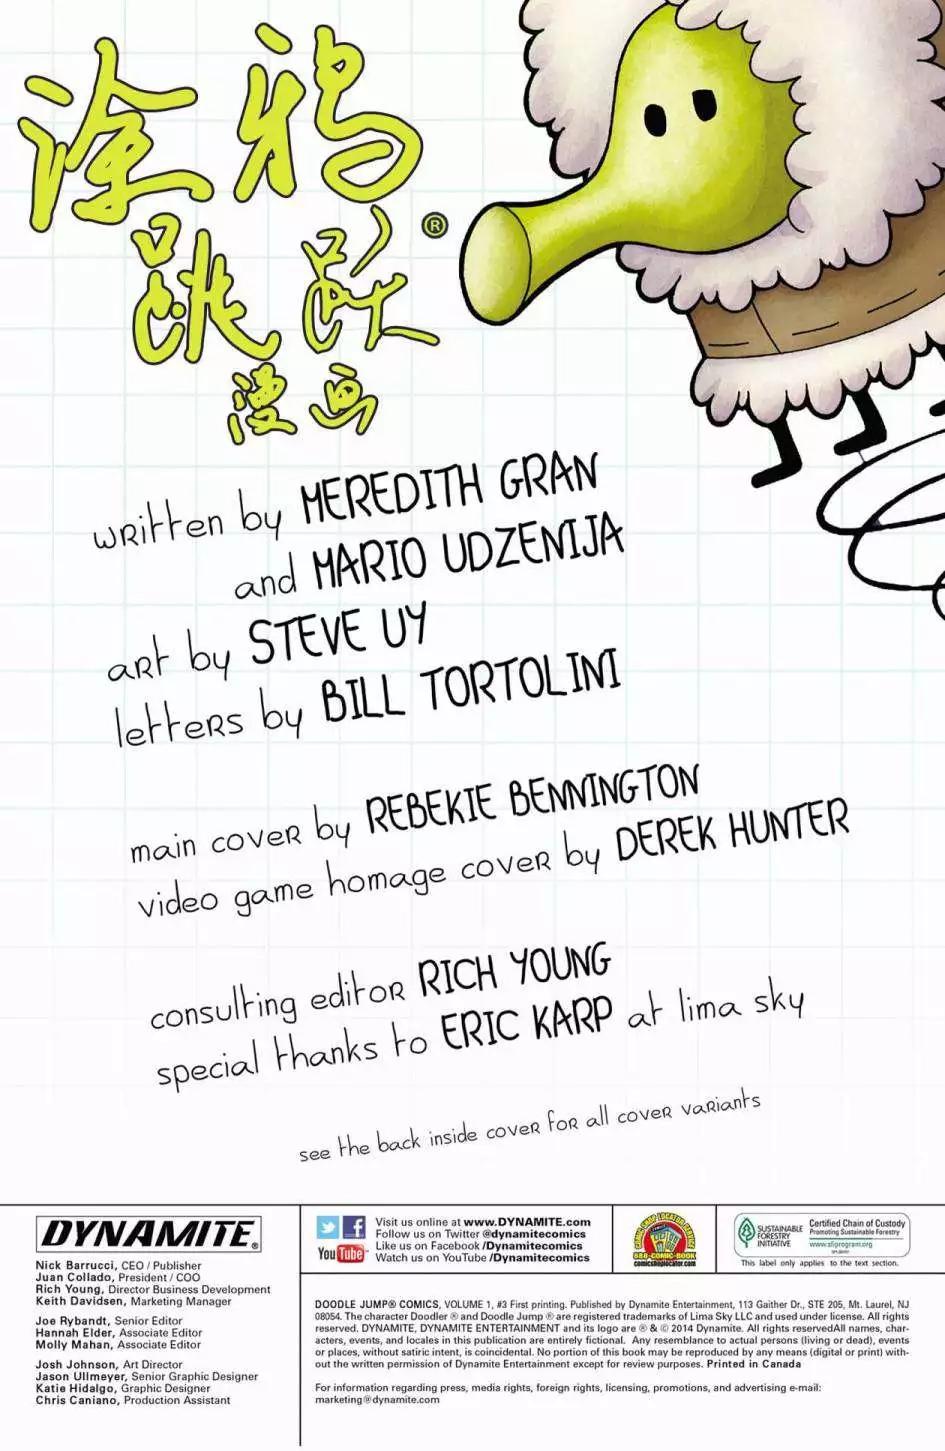 涂鸦
跳跃®
漫画
written by MEREDITH GRAN
and MARIO UDZENIJA
art by STEVE UY
letters by BILL TORTOLINI
main cover by REBEKIE BENNINGTON
video game homage cover by DEREK HUNTER
consulting editor RICH YOUNG
special thanks to ERIC KARP at lima sky
see the back inside cover for all cover variants
DYNAMITE®
Nick Barrucci, CEO / Publisher
Juan Collado, President / COO
Rich Young, Director Business Development
Keith Davidsen, Marketing Manager
Joe Rybandt, Senior Editor
Hannah Elder, Associate Editor
Molly Mahan, Associate Editor
Josh Johnson, Art Director
Jason Ullmeyer, Senior Graphic Designer
Katie Hidalgo, Graphic Designer
Chris Caniano, Production Assistant
You Tube
Visit us online at www.DYNAMITE.com
Follow us on Twitter @dynamitecomics
Like us on Facebook /Dynamitecomics
Watch us on YouTube /Dynamitecomics
COMIC SHOP LOCATOR SERVICE
888-COMIC-BOOK
comicshoplocator.com
SUSTAINABLE
FORESTRY
INITIATIVE
Certified Chain of Custody
Promoting Sustainable Forestry
www.sfiprogram.org
This label only applies to the text section.
DOODLE JUMP® COMICS, VOLUME 1, #3 First printing. Published by Dynamite Entertainment, 113 Gaither Dr., STE 205, Mt. Laurel, NJ
08054. The character Doodler ® and Doodle Jump ® are registered trademarks of Lima Sky LLC and used under license. All rights
reserved. DYNAMITE, DYNAMITE ENTERTAINMENT and its logo are ® & © 2014 Dynamite. All rights reservedAll names, char-
acters, events, and locales in this publication are entirely fictional. Any resemblance to actual persons (living or dead), events
or places, without satiric intent, is coincidental. No portion of this book may be reproduced by any means (digital or print) with-
out the written permission of Dynamite Entertainment except for review purposes. Printed in Canada
For information regarding press, media rights, foreign rights, licensing, promotions, and advertising e-mail:
marketing@dynamite.com